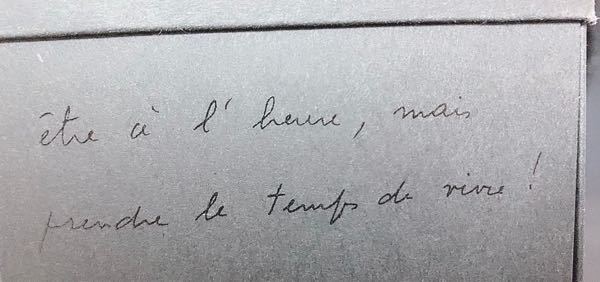 être à l'heure, mais
prendre le temps de vivre !